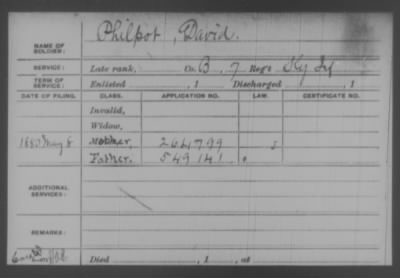 Philpot, David.
NAME OF SOLDIER:
SERVICE: Late rank, Co. B, 7 Reg't Ky Inf
TERM OF SERVICE: Enlisted , 1 Discharged , 1
DATE OF FILING. CLASS. APPLICATION NO. LAW. CERTIFICATE NO.
Invalid,
Widow,
Mother, 264799
Father, 549141
ADDITIONAL SERVICES:
REMARKS:
Died , 1 , at